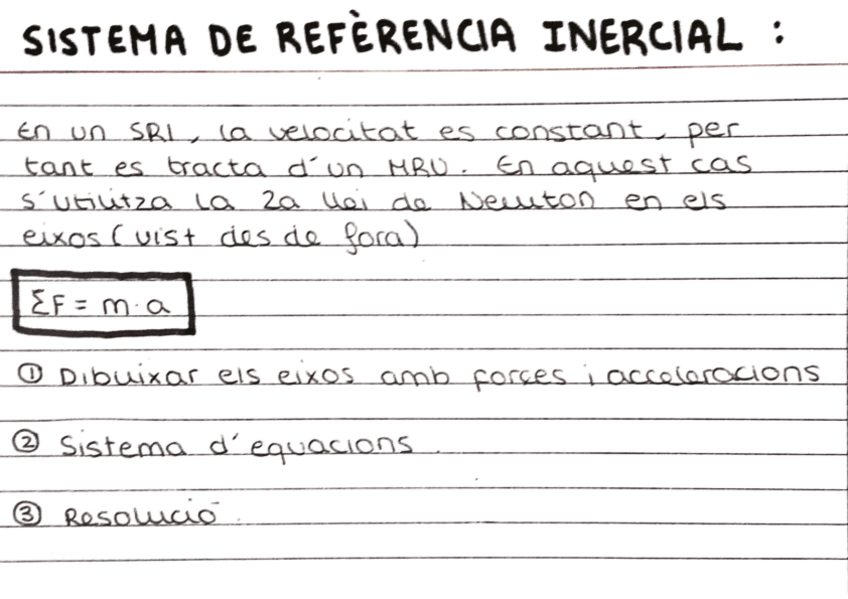 SISTEMA DE REFÈRENCIA INERCIAL :
En un SRI, la velocitat es constant, per
tant es tracta d'un MRU. En aquest cas
s'utilitza la 2a llei de Newton en els
eixos (vist des de fora)
ΣF = m · a
① Dibuixar els eixos amb forces i acceleracions
② Sistema d'equacions.
③ Resolució.